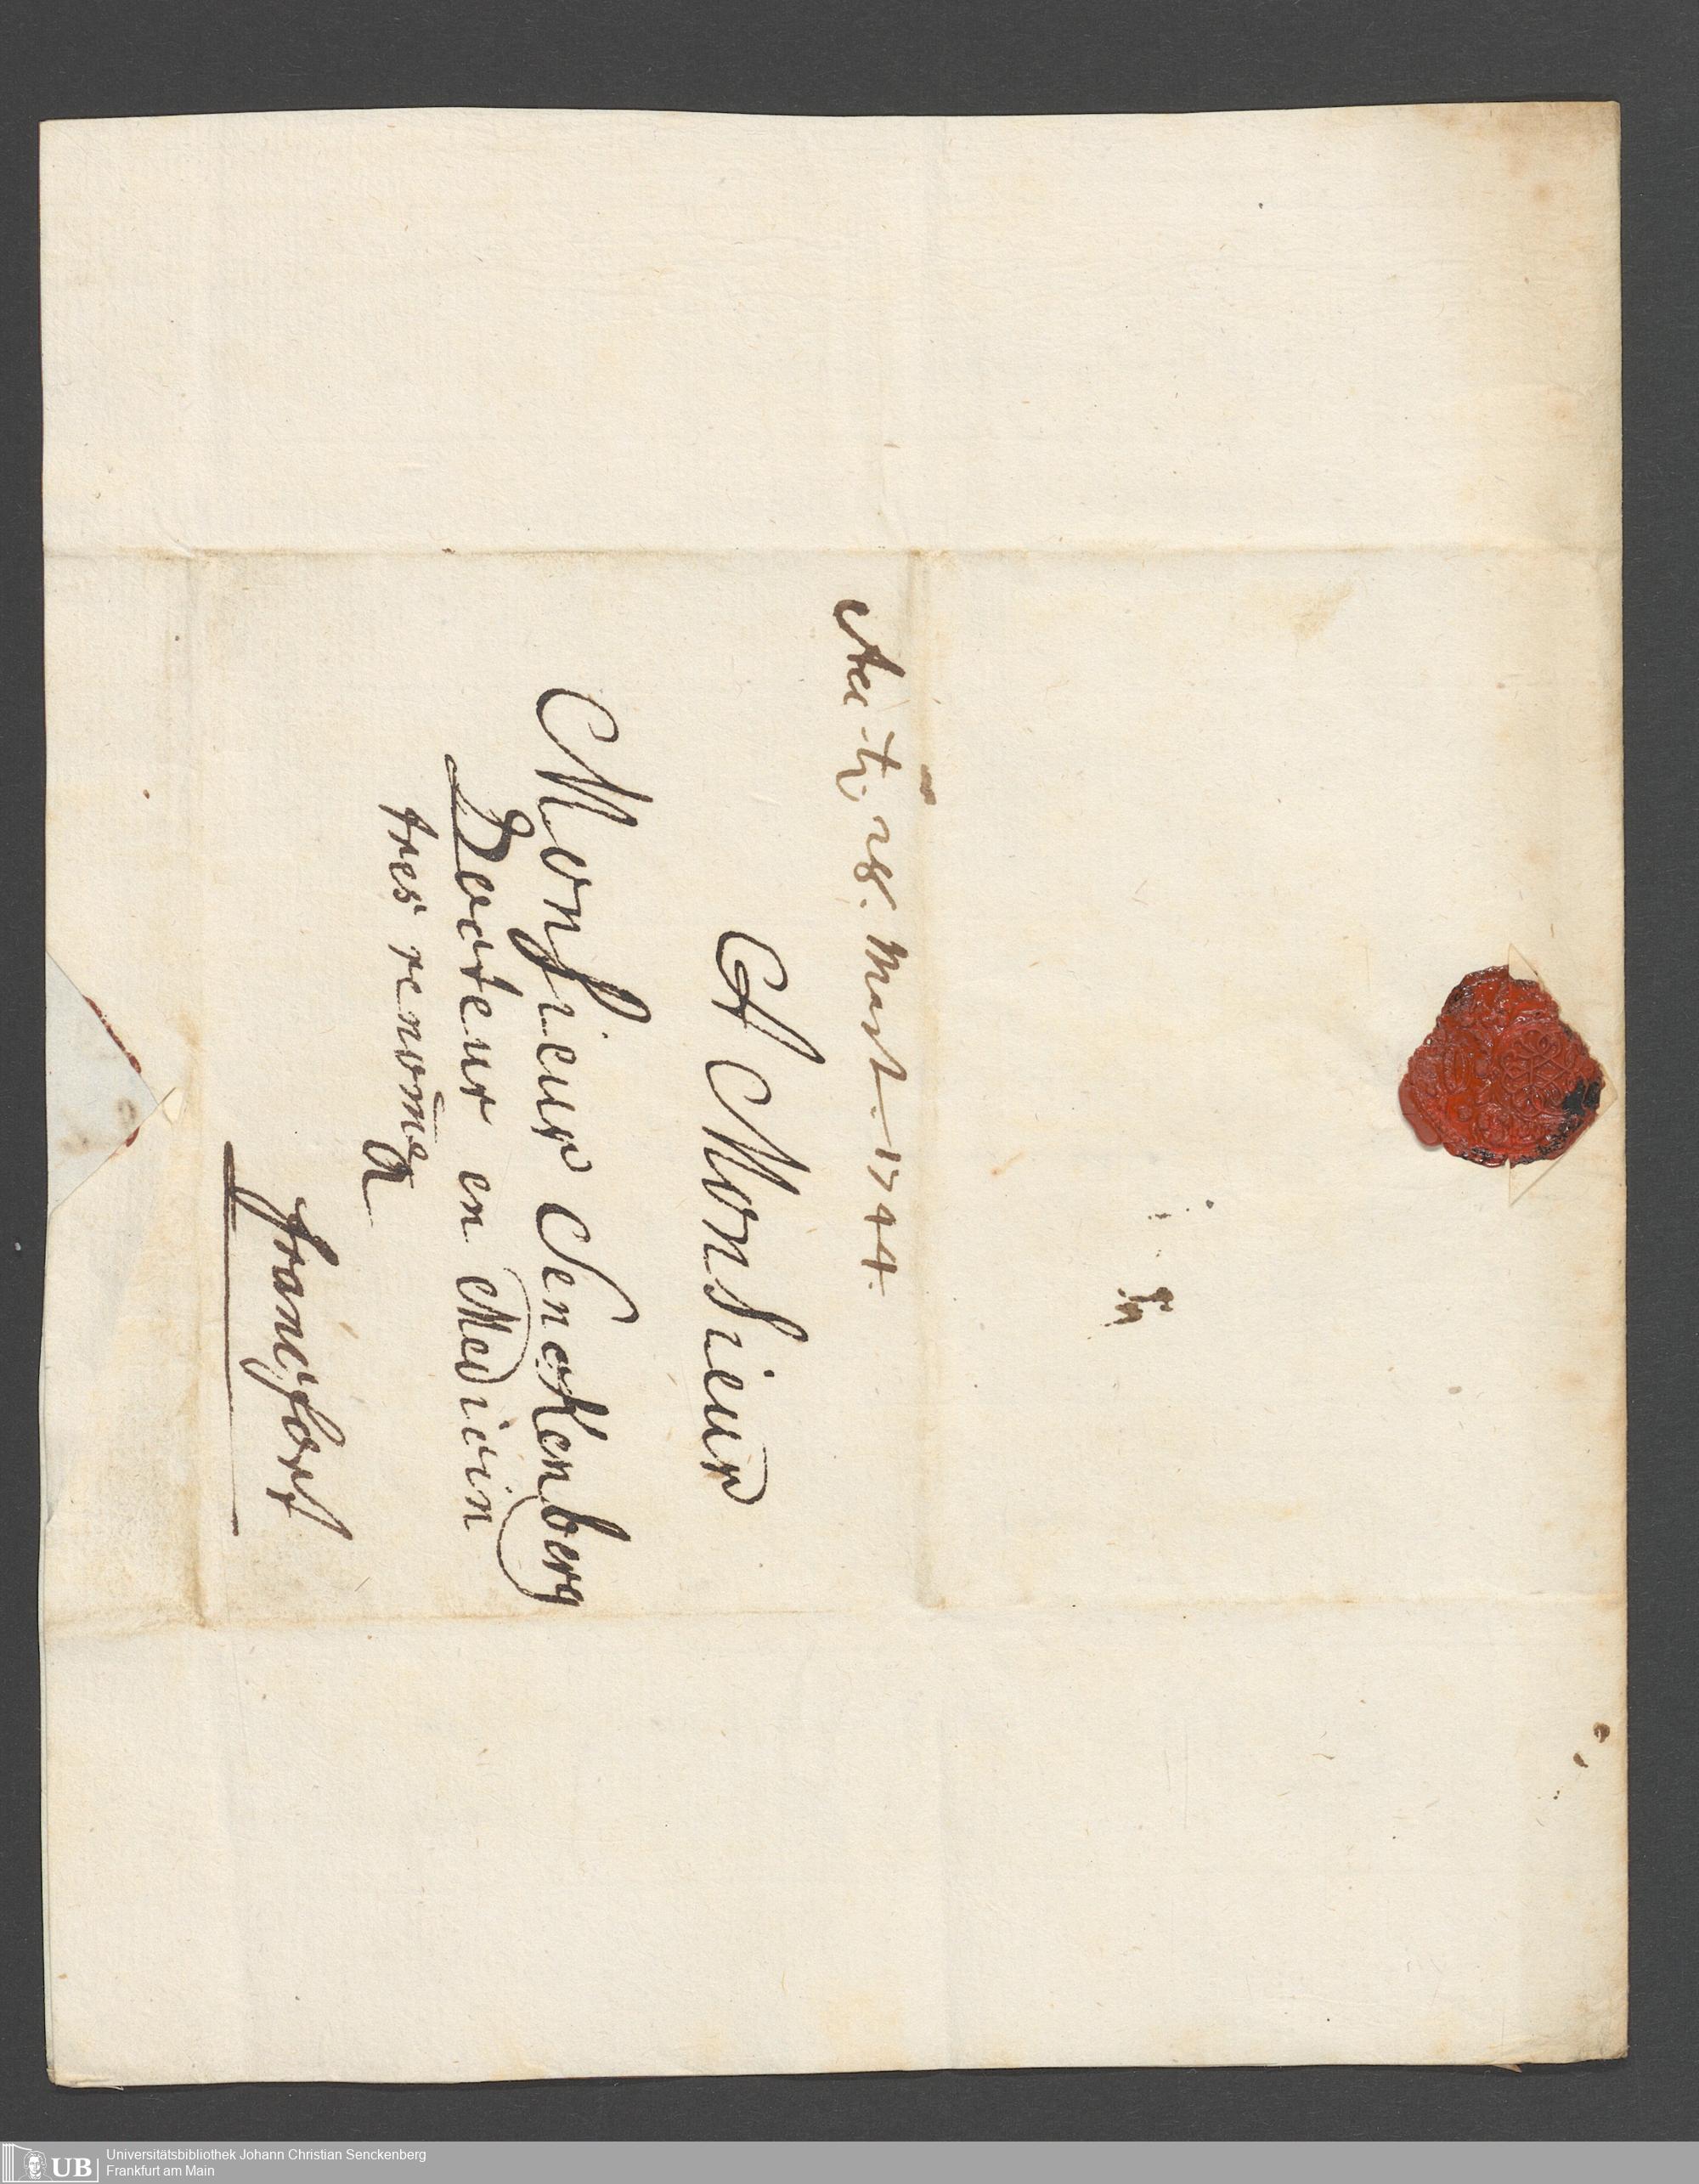 28. Mart. 1744.
A Monsieur
Monsieur Senckenberg
Docteur en Medicin
tres renom̄e
a
francfort
Universitätsbibliothek Johann Christian Senckenberg
Frankfurt am Main
UB